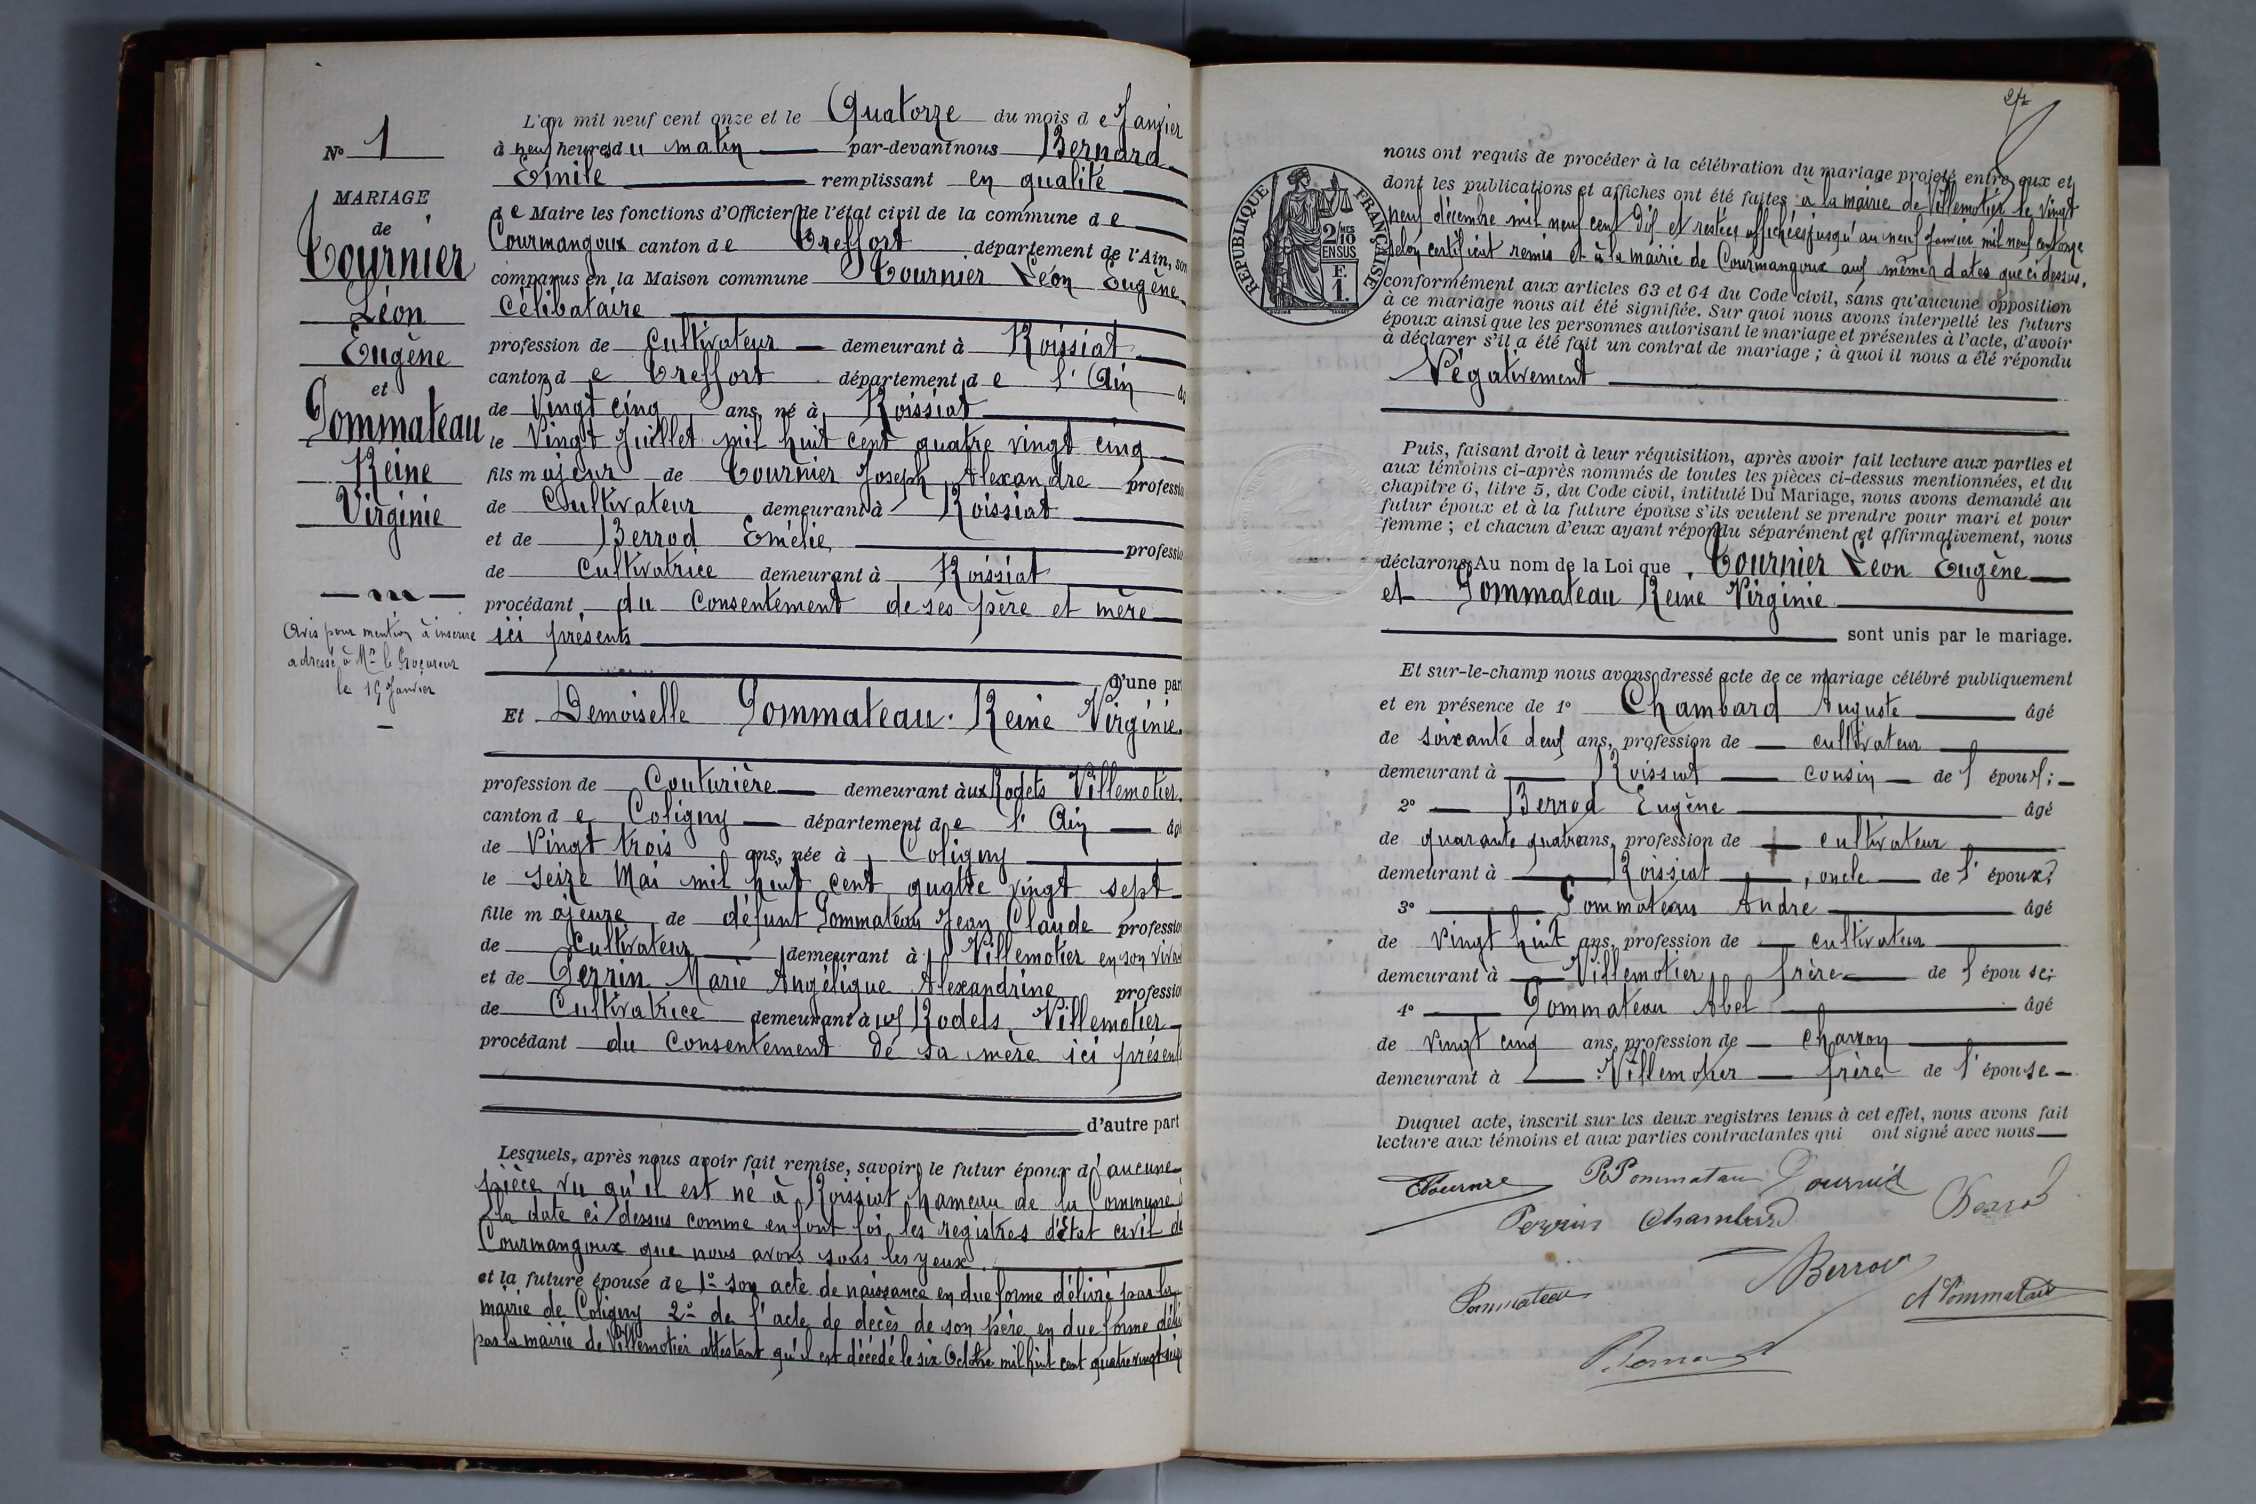 N° 1
MARIAGE
de
Tournier
Léon
Eugène
et
Pommateau
Reine
Virginie
Avis pour mention à inscrire
adressé à Mr le Procureur
le 19 Janvier
L'an mil neuf cent onze et le Quatorze du mois de Janvier
à neuf heures du matin par-devant nous Bernard
Emile remplissant en qualité
de Maire les fonctions d'Officier de l'état civil de la commune de
Courmangoux canton de Treffort département de l'Ain, son
comparus en la Maison commune Tournier Léon Eugène
Célibataire
profession de Cultivateur demeurant à Roissiat
canton de Treffort département de l'Ain âg
de Vingt cinq ans, né à Roissiat
le Vingt Juillet mil huit cent quatre vingt cinq
fils majeur de Tournier Joseph Alexandre professio
de Cultivateur demeurant à Roissiat
et de Berrod Emélie professio
de Cultivatrice demeurant à Roissiat
procédant du Consentement de ses père et mère
ici présents
d'une part
Et Demoiselle Pommateau Reine Virginie
profession de Couturière demeurant aux Rodets Villemotier
canton de Coligny département de l'Ain âgé
de Vingt trois ans, née à Coligny
le Seize Mai mil huit cent quatre vingt sept
fille majeure de défunt Pommateau Jean Claude professio
de Cultivateur demeurant à Villemotier en son viva
et de Perrin Marie Angélique Alexandrine professio
de Cultivatrice demeurant aux Rodets, Villemotier
procédant du Consentement de sa mère ici présent
d'autre part
Lesquels, après nous avoir fait remise, savoir, le futur époux d'aucune
pièce vu qu'il est né à Roissiat hameau de la Commune à
la date ci dessus comme en font foi les registres d'état civil de
Courmangoux que nous avons sous les yeux
et la future épouse de 1° son acte de naissance en due forme délivré par la
mairie de Coligny 2° de l'acte de décès de son père en due forme déli
par la mairie de Villemotier attestant qu'il est décédé le six Octobre mil huit cent quatre vingt seize
nous ont requis de procéder à la célébration du mariage projeté entre eux et
dont les publications et affiches ont été faites à la mairie de Villemotier le vingt
neuf décembre mil neuf cent dix et restées affichées jusqu'au neuf Janvier mil neuf cent onze
selon certificat remis et à la mairie de Courmangoux aux mêmes dates que ci dessus.
conformément aux articles 63 et 64 du Code civil, sans qu'aucune opposition
à ce mariage nous ait été signifiée. Sur quoi nous avons interpellé les futurs
époux ainsi que les personnes autorisant le mariage et présentes à l'acte, d'avoir
à déclarer s'il a été fait un contrat de mariage ; à quoi il nous a été répondu
Négativement
RÉPUBLIQUE FRANÇAISE
2/10 MES
EN SUS
F.
1.
Puis, faisant droit à leur réquisition, après avoir fait lecture aux parties et
aux témoins ci-après nommés de toutes les pièces ci-dessus mentionnées, et du
chapitre 6, titre 5, du Code civil, intitulé Du Mariage, nous avons demandé au
futur époux et à la future épouse s'ils veulent se prendre pour mari et pour
femme ; et chacun d'eux ayant répondu séparément et affirmativement, nous
déclarons Au nom de la Loi que Tournier Léon Eugène
et Pommateau Reine Virginie
sont unis par le mariage.
Et sur-le-champ nous avons dressé acte de ce mariage célébré publiquement
et en présence de 1° Chambard Auguste âgé
de soixante deux ans, profession de cultivateur
demeurant à Roissiat cousin de l'époux ;
2° Berrod Eugène âgé
de quarante quatre ans, profession de cultivateur
demeurant à Roissiat, oncle de l'époux ;
3° Pommateau Andre âgé
de vingt huit ans, profession de cultivateur
demeurant à Villemotier frère de l'épouse ;
4° Pommateau Abel âgé
de vingt cinq ans, profession de charron
demeurant à Villemotier frère de l'épouse
Duquel acte, inscrit sur les deux registres tenus à cet effet, nous avons fait
lecture aux témoins et aux parties contractantes qui ont signé avec nous
R Pommateau
Perrin Chambard
Berrod
Pommateau
A Pommateau